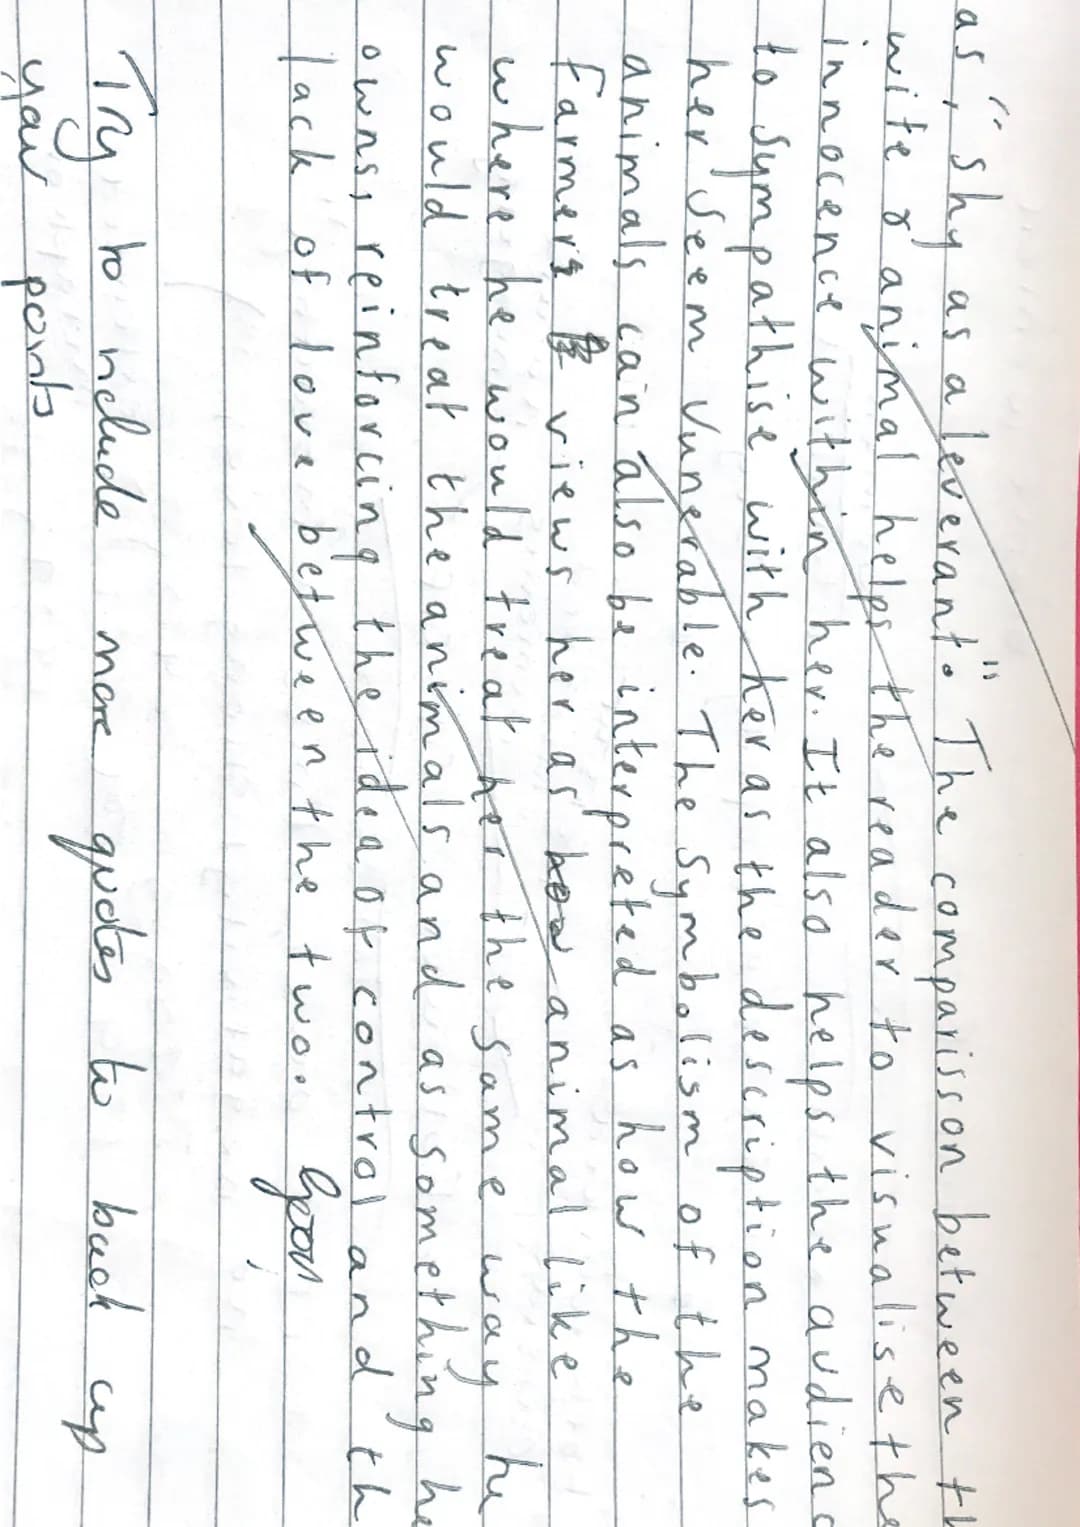 as, "shy as a leverant." The comparisson between th
wife & animal helps the reader to visualise the
innocence within her. It also helps the audienc
to sympathise with her as the description makes
her seem vunerable. The symbolism of the
animals can also be interpreted as how the
farmers views her as how animal like
where he would treat her the same way he
would treat the animals and as something he
owns, reinforcing the idea of control and th
lack of love between the two. Good!
Try to include more quotes to back up
your points